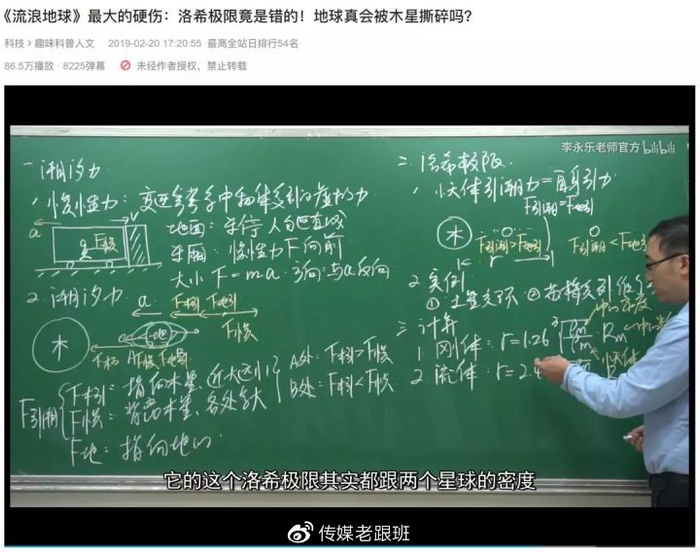 《流浪地球》最大的硬伤：洛希极限竟是错的！地球真会被木星撕碎吗？
科技 > 趣味科普人文 2019-02-20 17:20:55 最高全站日排行54名
86.5万播放 · 8225弹幕 未经作者授权，禁止转载
李永乐老师官方 bilibili
一 潮汐力
1. 惯性力：变速参考系中物体受到的虚拟力
a
F惯
地面：
车厢：惯性力F向前
大小 F=ma 方向：与a反向
2. 潮汐力
a
F木引 F地引
F惯
木
地
F引潮
F木引：指向木星，近大远小
F惯：背离木星，各处等大
F地：指向地心
A处：F木引>F惯
B处：F木引<F惯
二 洛希极限
1. 小天体引潮力=自身引力
F引潮=F地引
木
F引潮>F地引
F引潮<F地
2 实例
① 土星光环 ②
三 计算
1. 刚体：r=1.26
Rm
2. 流体：r=2.4
它的这个洛希极限其实都跟两个星球的密度
传媒老跟班